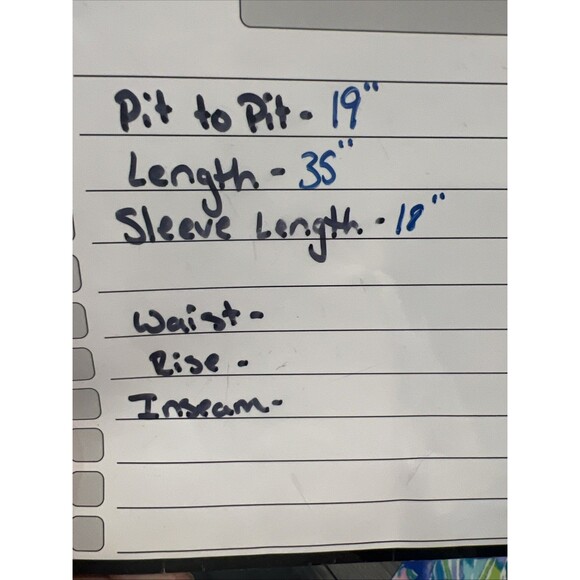 Pit to Pit - 19"
Length - 35"
Sleeve Length - 18"
Waist -
Rise -
Inseam -